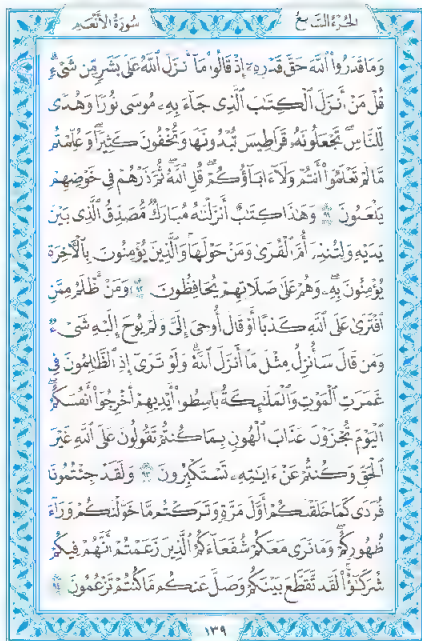 الجزء السابع
سورة الأنعام
وَمَا قَدَرُوا۟ ٱللَّهَ حَقَّ قَدْرِهِۦٓ إِذْ قَالُوا۟ مَآ أَنزَلَ ٱللَّهُ عَلَىٰ بَشَرٍ مِّن شَىْءٍ
قُلْ مَنْ أَنزَلَ ٱلْكِتَٰبَ ٱلَّذِى جَآءَ بِهِۦ مُوسَىٰ نُورًا وَهُدًى
لِّلنَّاسِ تَجْعَلُونَهُۥ قَرَاطِيسَ تُبْدُونَهَا وَتُخْفُونَ كَثِيرًا وَعُلِّمْتُم
مَّا لَمْ تَعْلَمُوٓا۟ أَنتُمْ وَلَآ ءَابَآؤُكُمْ قُلِ ٱللَّهُ ثُمَّ ذَرْهُمْ فِى خَوْضِهِمْ
يَلْعَبُونَ ٩١ وَهَٰذَا كِتَٰبٌ أَنزَلْنَٰهُ مُبَارَكٌ مُّصَدِّقُ ٱلَّذِى بَيْنَ
يَدَيْهِ وَلِتُنذِرَ أُمَّ ٱلْقُرَىٰ وَمَنْ حَوْلَهَا وَٱلَّذِينَ يُؤْمِنُونَ بِٱلْءَاخِرَةِ
يُؤْمِنُونَ بِهِۦ وَهُمْ عَلَىٰ صَلَاتِهِمْ يُحَافِظُونَ ٩٢ وَمَنْ أَظْلَمُ مِمَّنِ
ٱفْتَرَىٰ عَلَى ٱللَّهِ كَذِبًا أَوْ قَالَ أُوحِىَ إِلَىَّ وَلَمْ يُوحَ إِلَيْهِ شَىْءٌ
وَمَن قَالَ سَأُنزِلُ مِثْلَ مَآ أَنزَلَ ٱللَّهُ وَلَوْ تَرَىٰٓ إِذِ ٱلظَّٰلِمُونَ فِى
غَمَرَٰتِ ٱلْمَوْتِ وَٱلْمَلَٰٓئِكَةُ بَاسِطُوٓا۟ أَيْدِيهِمْ أَخْرِجُوٓا۟ أَنفُسَكُمُ
ٱلْيَوْمَ تُجْزَوْنَ عَذَابَ ٱلْهُونِ بِمَا كُنتُمْ تَقُولُونَ عَلَى ٱللَّهِ غَيْرَ
ٱلْحَقِّ وَكُنتُمْ عَنْ ءَايَٰتِهِۦ تَسْتَكْبِرُونَ ٩٣ وَلَقَدْ جِئْتُمُونَا
فُرَٰدَىٰ كَمَا خَلَقْنَٰكُمْ أَوَّلَ مَرَّةٍ وَتَرَكْتُم مَّا خَوَّلْنَٰكُمْ وَرَآءَ
ظُهُورِكُمْ وَمَا نَرَىٰ مَعَكُمْ شُفَعَآءَكُمُ ٱلَّذِينَ زَعَمْتُمْ أَنَّهُمْ فِيكُمْ
شُرَكَٰٓؤُا۟ لَقَد تَّقَطَّعَ بَيْنَكُمْ وَضَلَّ عَنكُم مَّا كُنتُمْ تَزْعُمُونَ ٩٤
١٣٩